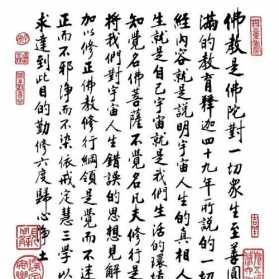 佛教是佛陀對一切眾生至善圓
滿的教育釋迦四十九年所說的一切
經內容就是說明宇宙人生的真相人
生就是自己宇宙就是我們生活的環境
知覺名佛菩薩不覺名凡夫修行是
將我們對宇宙人生錯誤的思想見解
加以修正佛教修行綱領是覺
正而不邪淨而不染依戒定慧三學以
求達到此目的勤修六度歸心淨土